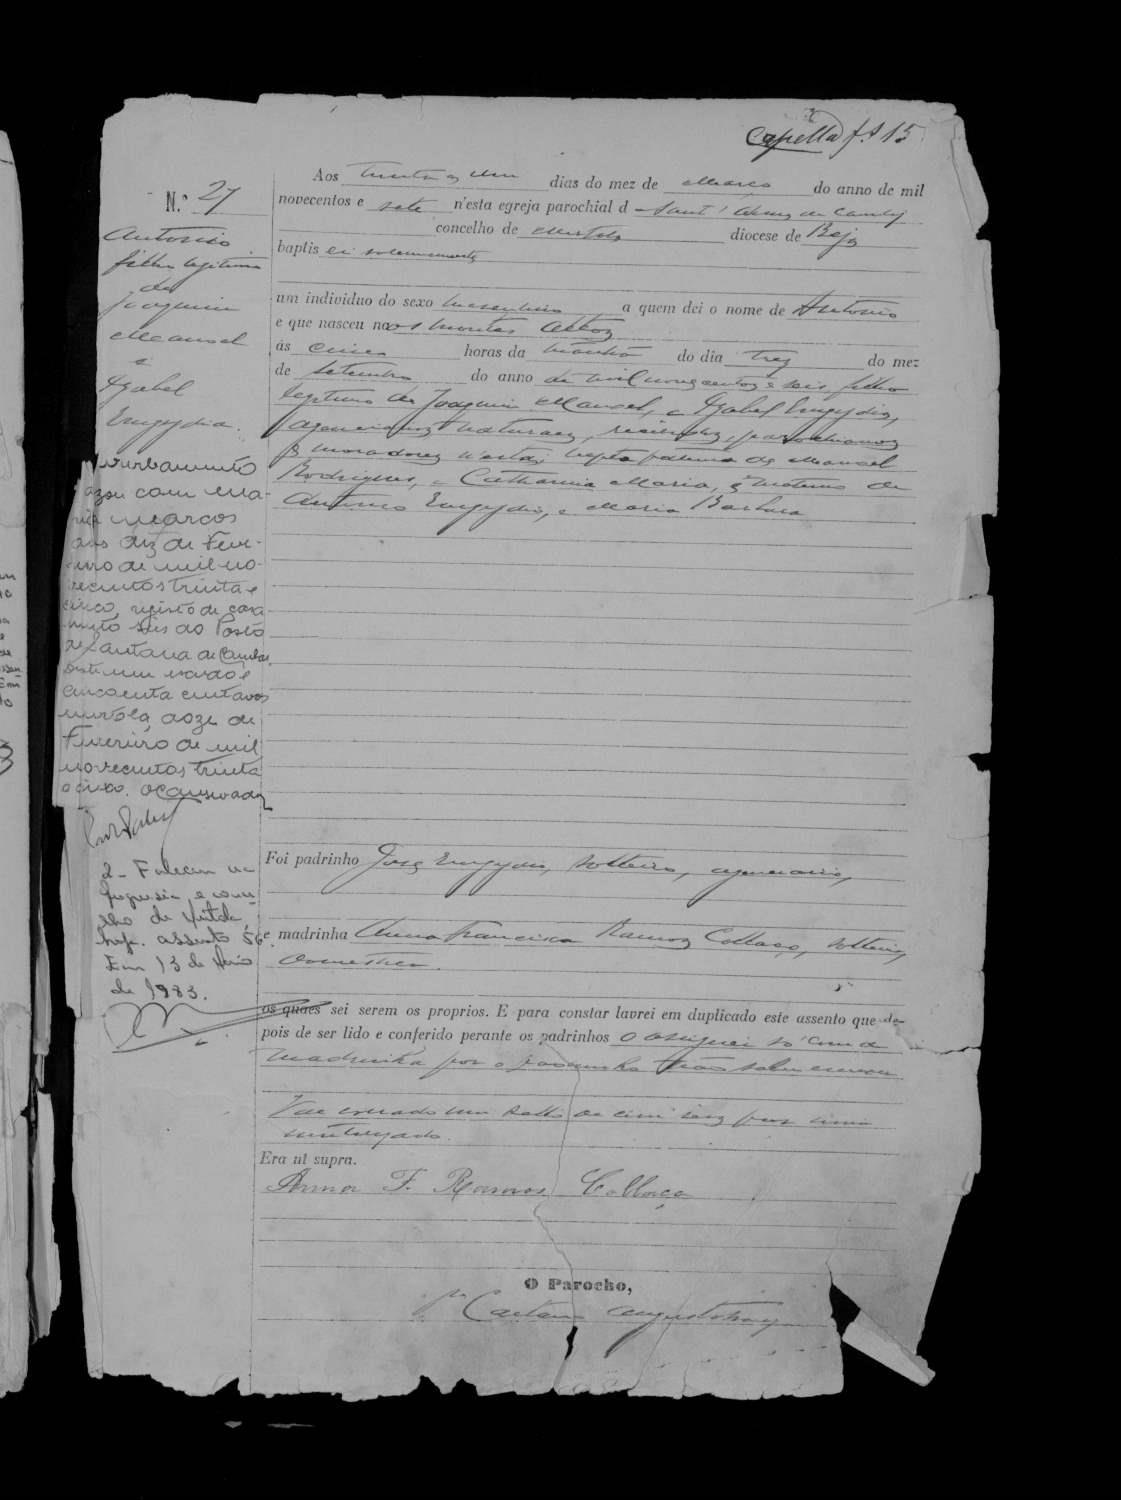 Capella f. 15
Aos trinta e um dias do mez de Março do anno de mil
N.º 27
novecentos e sete n'esta egreja parochial d Sant'Anna de Cambas
concelho de Mertola diocese de Beja
baptis ei solemnemente
um individuo do sexo masculino a quem dei o nome de Antonio
e que nasceu nos montes Altos
ás cinco horas da manhã do dia trez do mez
de setembro do anno de mil novecentos e seis filho
legitimo de Joaquim Manoel, e Izabel Emygdia,
naturaes, recebidos, parochianos
e moradores n'esta; neto paterno de Manoel
Rodrigues, e Catharina Maria, e materno de
Antonio Emygdio, e Maria Barbara
Antonio
filho legitimo
de
Joaquim
Manoel
e
Izabel
Emygdia.
Averbamento
Casou com Ma-
ria Marcos
aos dez de Feve-
reiro de mil no-
vecentos trinta e
cinco, registo de casa
mento seis do Posto
de Santana de Cambas.
um escudo e
cincoenta centavos
Mertola, doze de
Fevereiro de mil
novecentos trinta
e cinco. O Conservador
2 - Faleceu na
freguesia e conce-
lho de
assento 56
Em 13 de
de 1983.
Foi padrinho José Emygdio, solteiro,
e madrinha Anna Francisca Ramos Collaço, solteira,
domestica.
os quaes sei serem os proprios. E para constar lavrei em duplicado este assento que de-
pois de ser lido e conferido perante os padrinhos o assignei só com a
madrinha por o padrinho não saber escrever
Vae collado um sello de cem reis por mim
inutilizado.
Era ut supra.
Anna F. Ramos Collaço
O Parocho,
Caetano Augusto